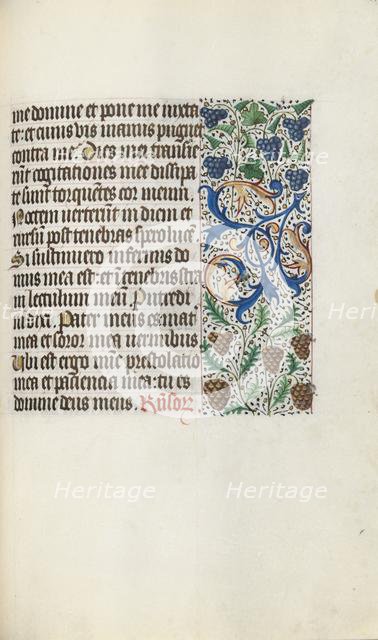 me domine et pone me iuxta
te: et cuius vis manus pugnet
contra me. Dies mei transie
rūt cogitationes mee dissipa
te sunt torquētes cor meum.
Noctem verterunt in diem et
rursū post tenebras spero lucē.
Si sustinuero infernus do
mus mea est: et ī tenebris stra
ui lectulum meū. Putredi
ni dixi. Pater meus es mat
mea et soror mea vermibus
Ubi est ergo nūc prestolatio
mea et paciencia mea: tu es
domine deus meus.
Heritage
Heritage
Heritage
Heritage
Heritage
Heritage